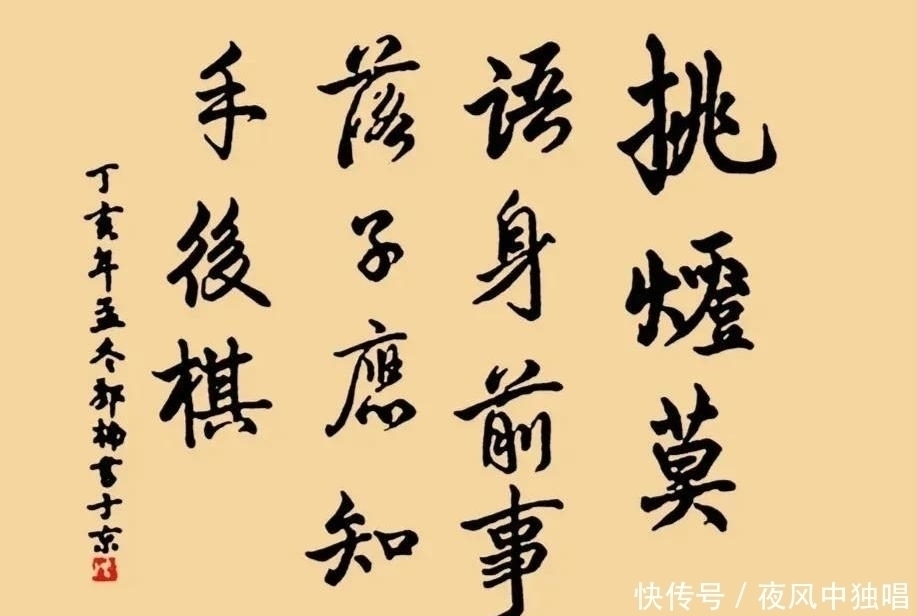 挑燈莫
語身前事
落子應知
手後棋
丁亥年孟冬郭楠書于京
快传号 / 夜风中独唱